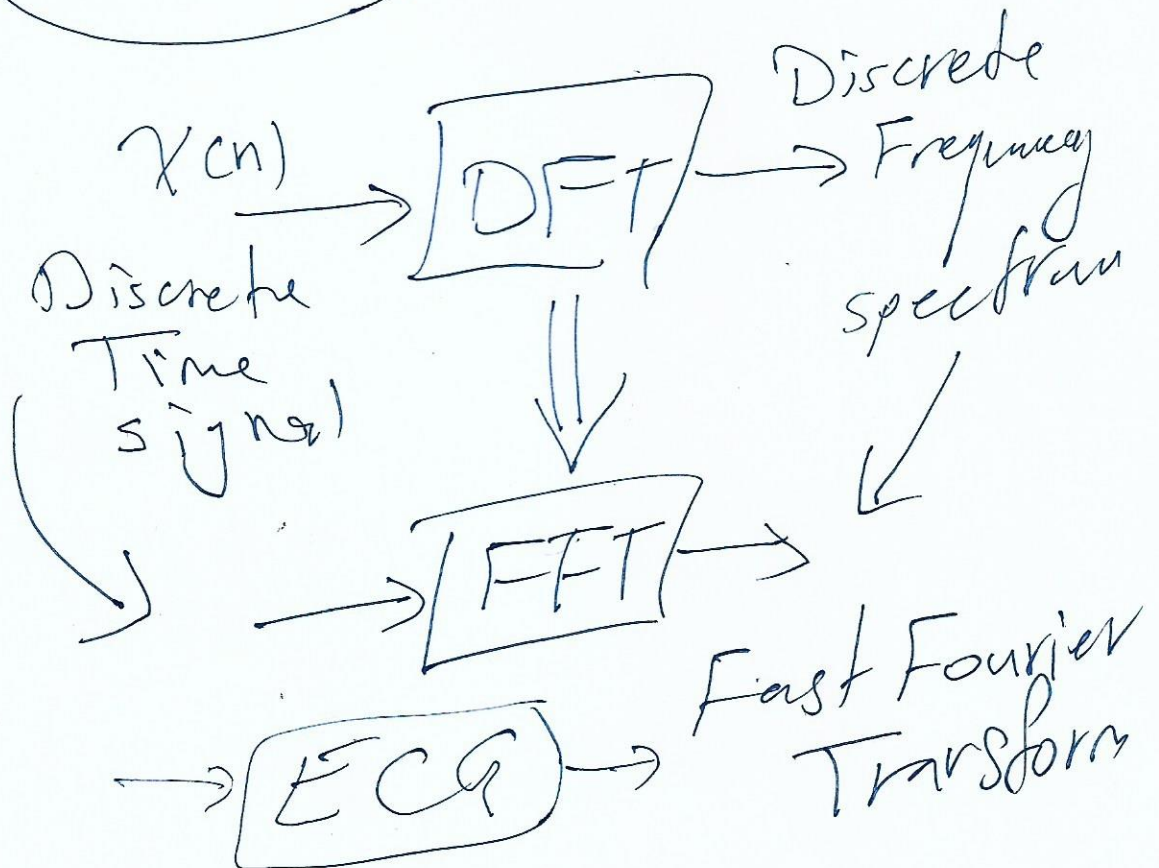 x(n)
DFT
Discrete
Frequency
spectrum
Discrete
Time
signal
FFT
Fast Fourier
Transform
ECG